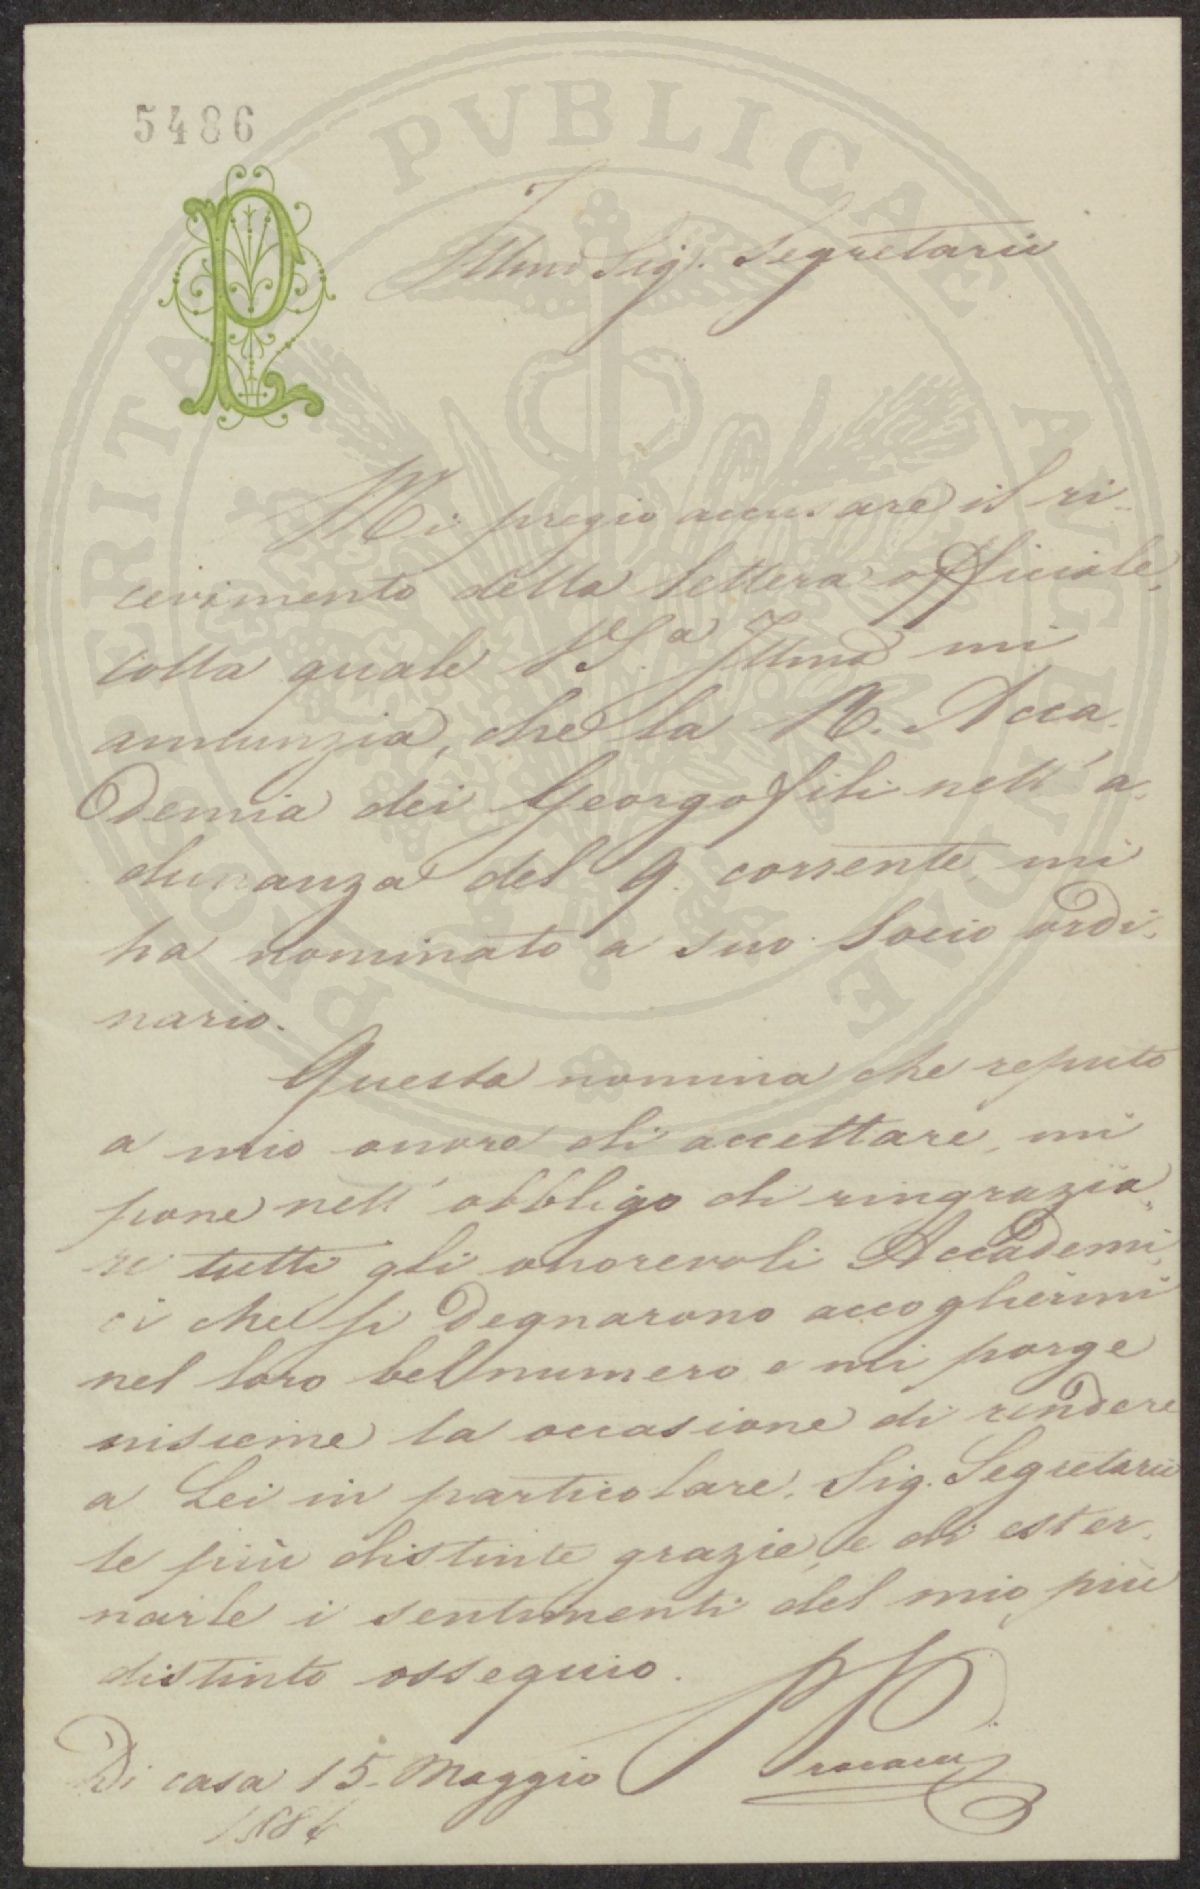 5486
PL
PROSPERITATI PVBLICAE AVGENDAE
Illmo Sig. Segretario
Mi pregio accusare il ri-
cevimento della lettera officiale,
colla quale V.S.a Illma mi
annunzia, che la R. Acca-
demia dei Georgofili nell'a-
dunanza del 9. corrente, mi
ha nominato a suo Socio ordi-
nario.
Questa nomina che reputo
a mio onore di accettare, mi
pone nell'obbligo di ringrazia-
re tutti gli onorevoli Accademi-
ci che si degnarono accogliermi
nel loro bel numero e mi porge
insieme la occasione di rendere
a Lei in particolare, Sig. Segretario
le più distinte grazie, e di ester-
narle i sentimenti del mio più
distinto ossequio.
Di casa 15. Maggio
1884